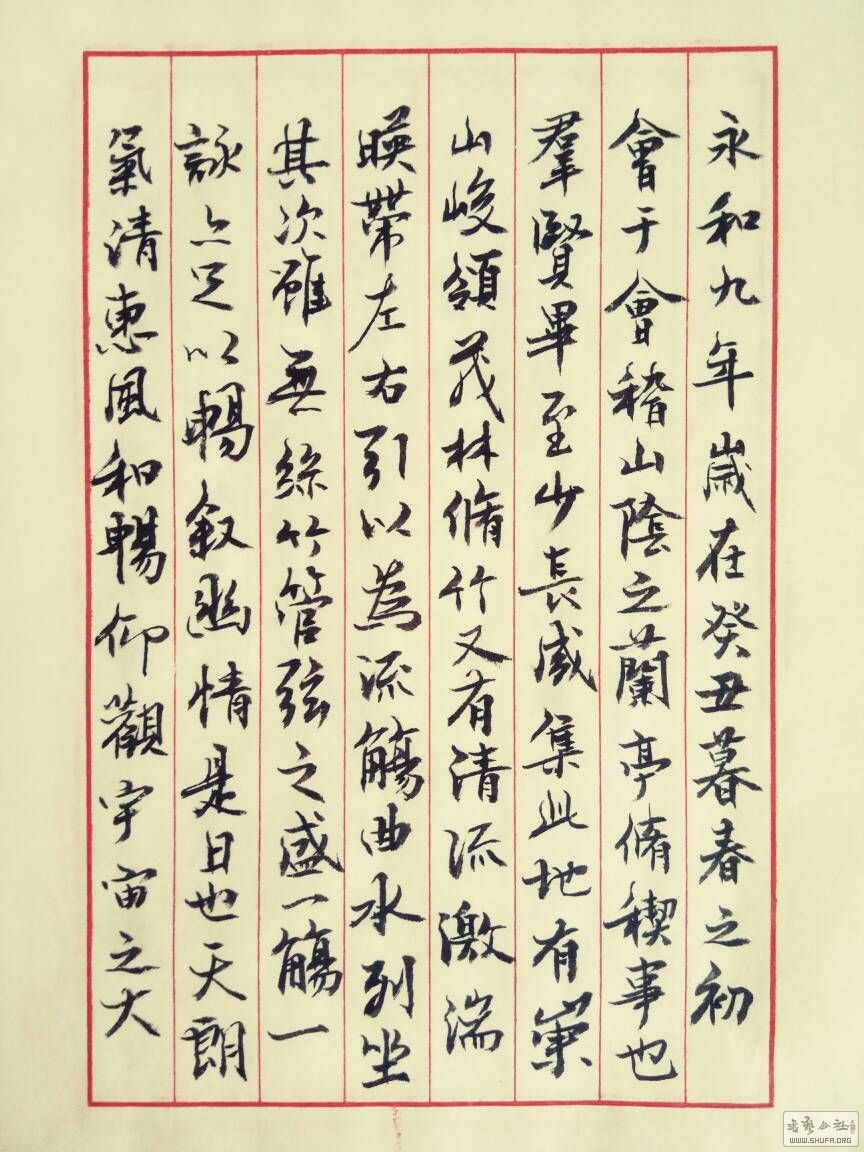 永和九年歲在癸丑暮春之初
會于會稽山陰之蘭亭脩稧事也
羣賢畢至少長咸集此地有崇
山峻領茂林脩竹又有清流激湍
暎帶左右引以為流觴曲水列坐
其次雖無絲竹管弦之盛一觴一
詠亦足以暢叙幽情是日也天朗
氣清惠風和暢仰觀宇宙之大
书艺公社
WWW.SHUFA.ORG